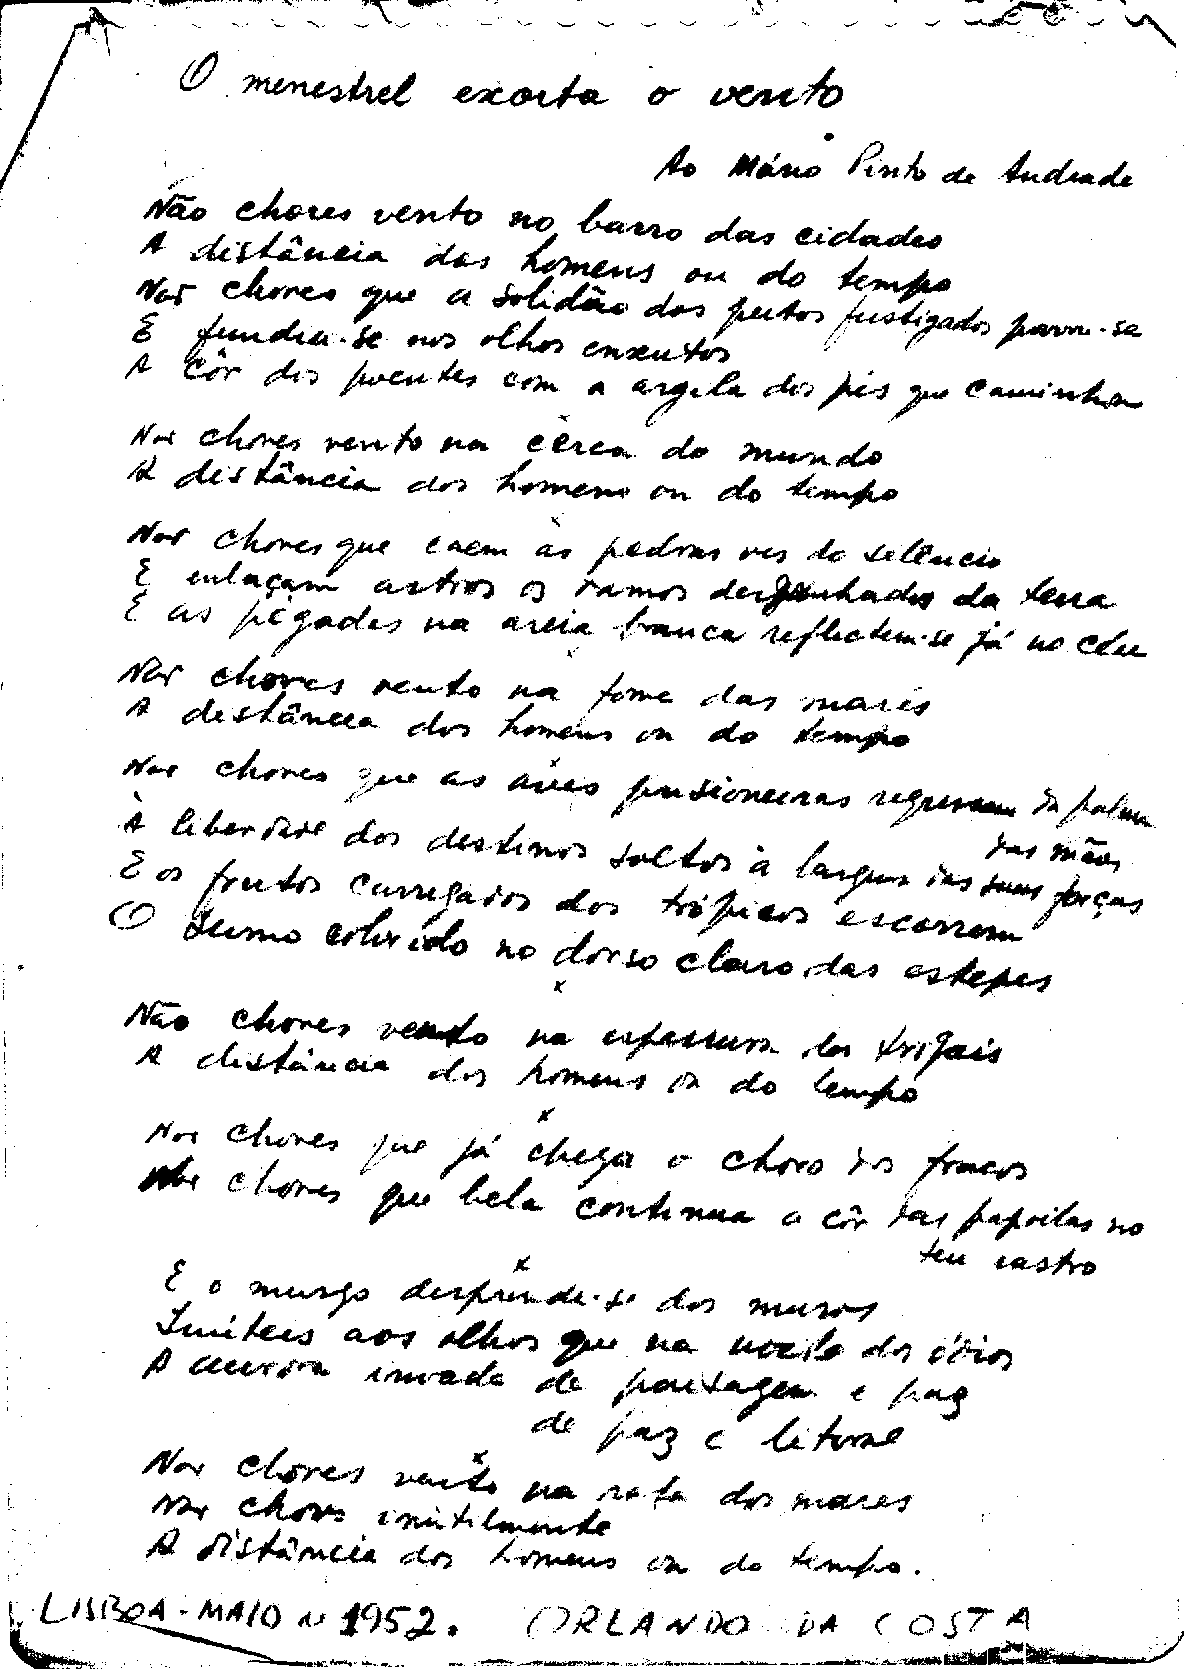 O menestrel exorta o vento
Ao Mário Pinto de Andrade
Não chores vento no barro das cidades
A distância dos homens ou do tempo
Não chores que a solidão dos peitos fustigados
E fundiu-se nos olhos enxutos
A côr dos poentes com a argila dos pés que caminham
Não chores vento na cêrca do mundo
A distância dos homens ou do tempo
Não chores que caem as pedras do silêncio
E enlaçam astros os ramos da terra
E as pègadas na areia branca reflectem-se já no céu
Não chores vento na fome das marés
A distância dos homens ou do tempo
Não chores que as aves prisioneiras regressam da palma
das mãos
À liberdade dos destinos soltos à largura das suas forças
E os frutos carregados dos trópicos escorrem
O sumo colorido no dorso claro das estepes
Não chores vento na espessura dos trigais
A distância dos homens ou do tempo
Não chores que já chega o choro dos fracos
Não chores que bela continua a côr das papoilas no
teu rastro
E o musgo desprende-se dos muros
Inúteis aos olhos que na noite dos ódios
A aurora invade de paisagem e paz
de paz e litoral
Não chores vento na rota dos mares
Não chores inùtilmente
A distância dos homens ou do tempo.
LISBOA - MAIO 1952. ORLANDO DA COSTA